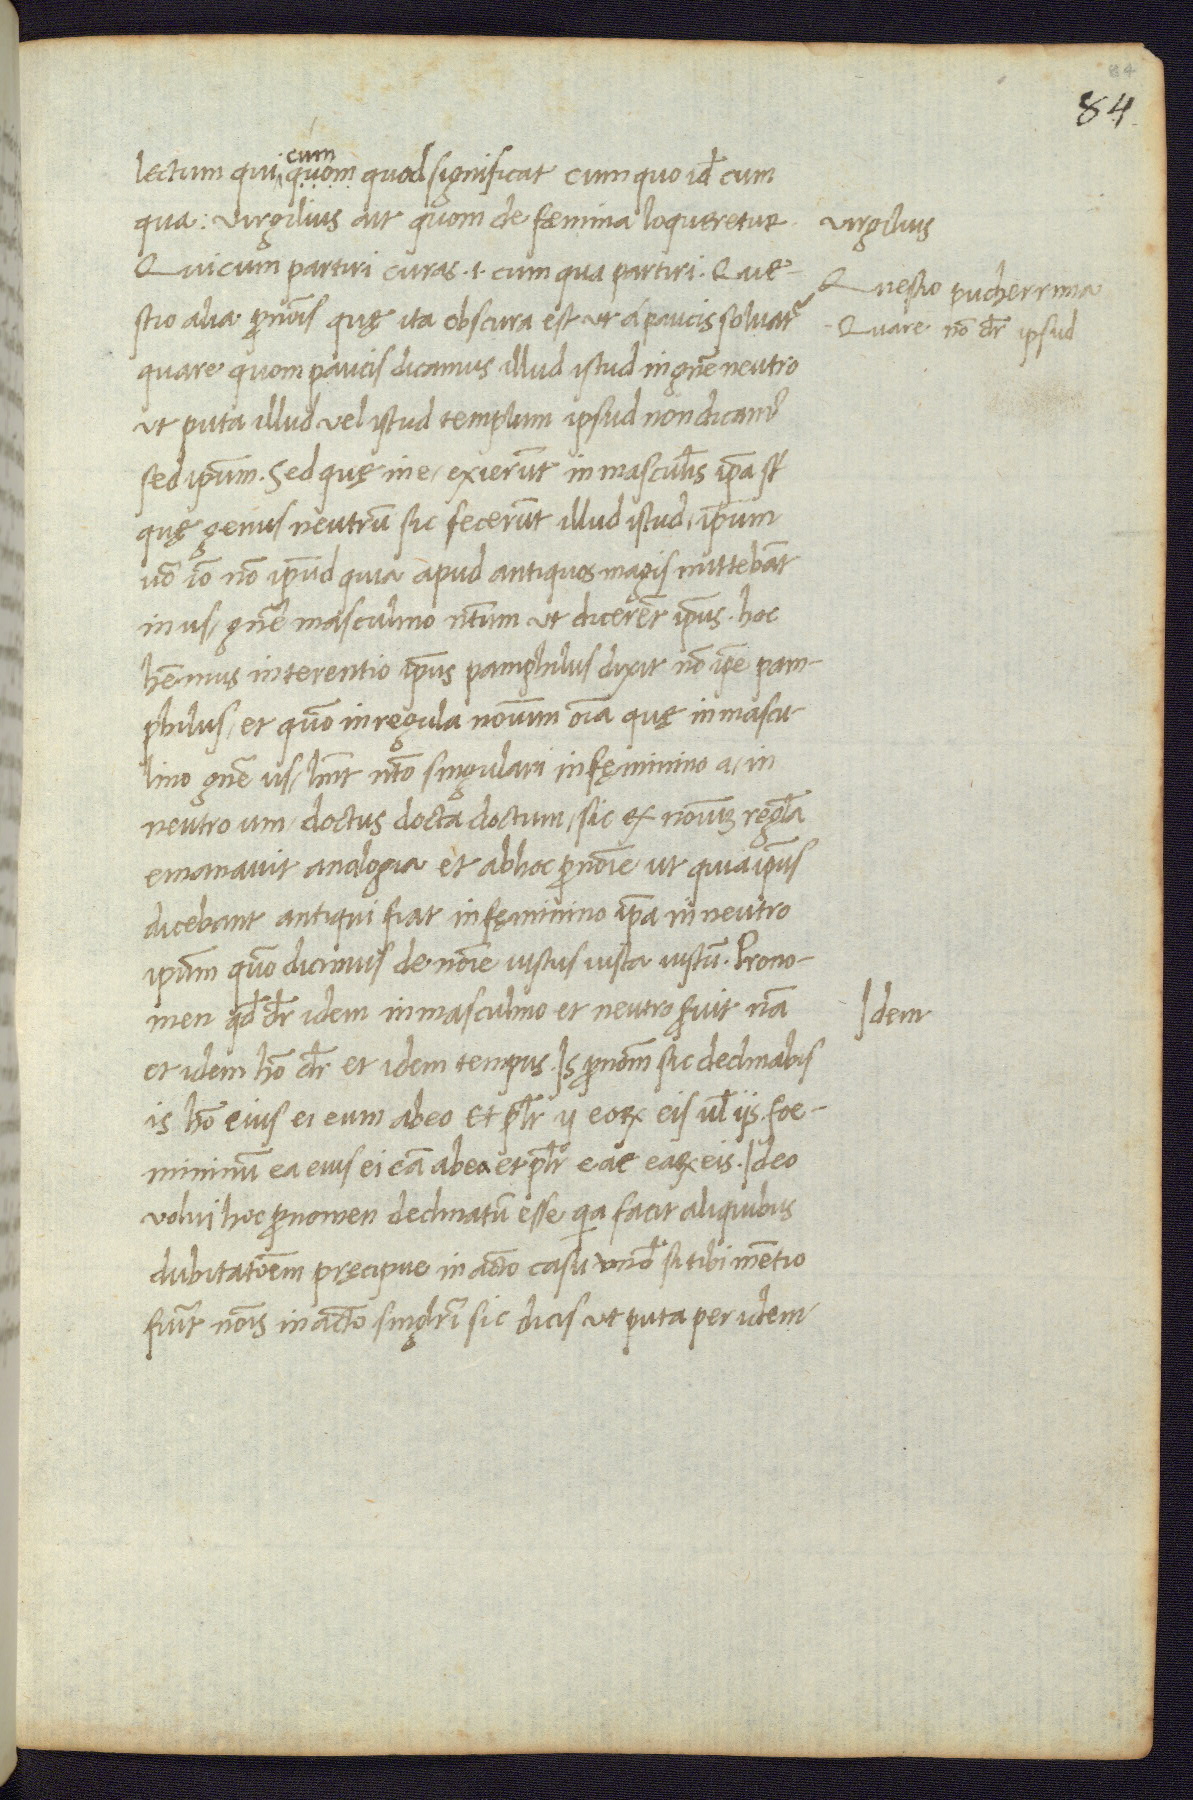 84
84
cum
lectum qui quom quod significat cum quo id̄ cum
qua: virgilius ait quom de fæmina loqueretur.
Quicum partiri curas .i. cum qua partiri. Quę-
stio alia p̄nōis quę ita obscura est ut á paucis soluat᷑
quare quom paucis dicamus illud istud in gn̄e neutro
ut puta illud vel istud templum ipsud non dicam᷒
sed ip̄um. Sed quę in e, exierūt in mascul̄is ip̄a st̄
quę genus neutrū sic fecerūt illud istud, ip̄um
uō iō nō ip̄ud quia apud antiquos magis mittebāt
in us, gn̄e masculino ntūm ut dicerēt ip̄us. hoc
hēmus in terentio ip̄us pamphilus dixit nō ip̄e pam-
philus, et quō in regula noīum oīa quę in mascu
lino gn̄e us, hn̄t ntō singulari in fęminino a, in
neutro um, doctus docta doctum, sic ex noīuꝫ regl̄a
emanauit analogia et ab hoc p̄noīe ut quia ip̄us
dicebant antiqui fiat in fęminino ip̄a in neutro
ip̄um quō dicimus de noīe iustus iusta iustū. Prono-
men qd̄ dr̄ idem in masculino et neutro seruit nā
et idem hō dr̄ et idem tempus. Is p̄nom̄ sic declinabis
is hō eius ei eum ab eo Et pl̄r ij eoꝝ eis ul̄ ijs. foe-
mininū ea eius ei eā ab ea et pl̄r eae eaꝝ eis. Ideo
volui hoc p̄nomen declinatū esse qa facit aliquibus
dubitatōem pręcipue in actō casu si tibi mētio
fiūt noīs in actō singlr̄i sic dicis ut puta per idem
virgilius
Questio pucherrima
Quare nō dr̄ ipsud
Idem